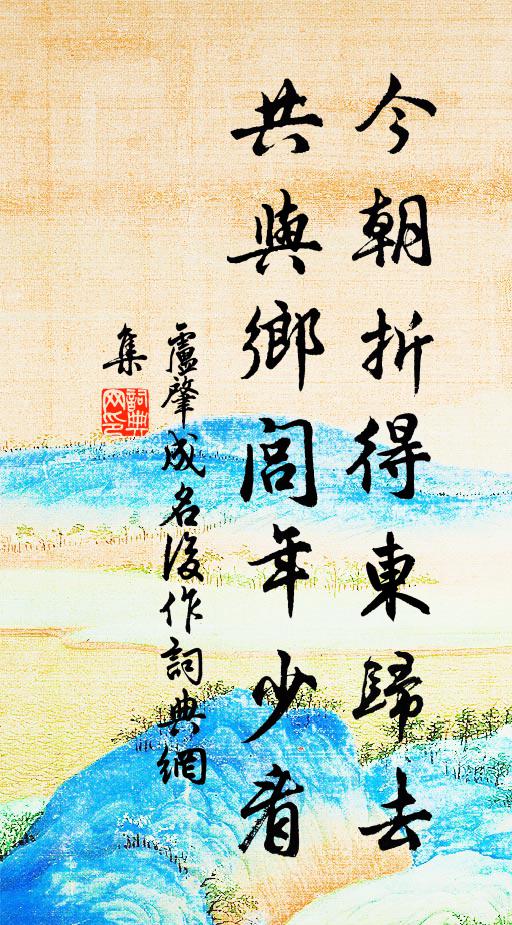 今朝折得東歸去
共與鄉閭年少看
盧肇成名後作詞典網
集
詞典
网印